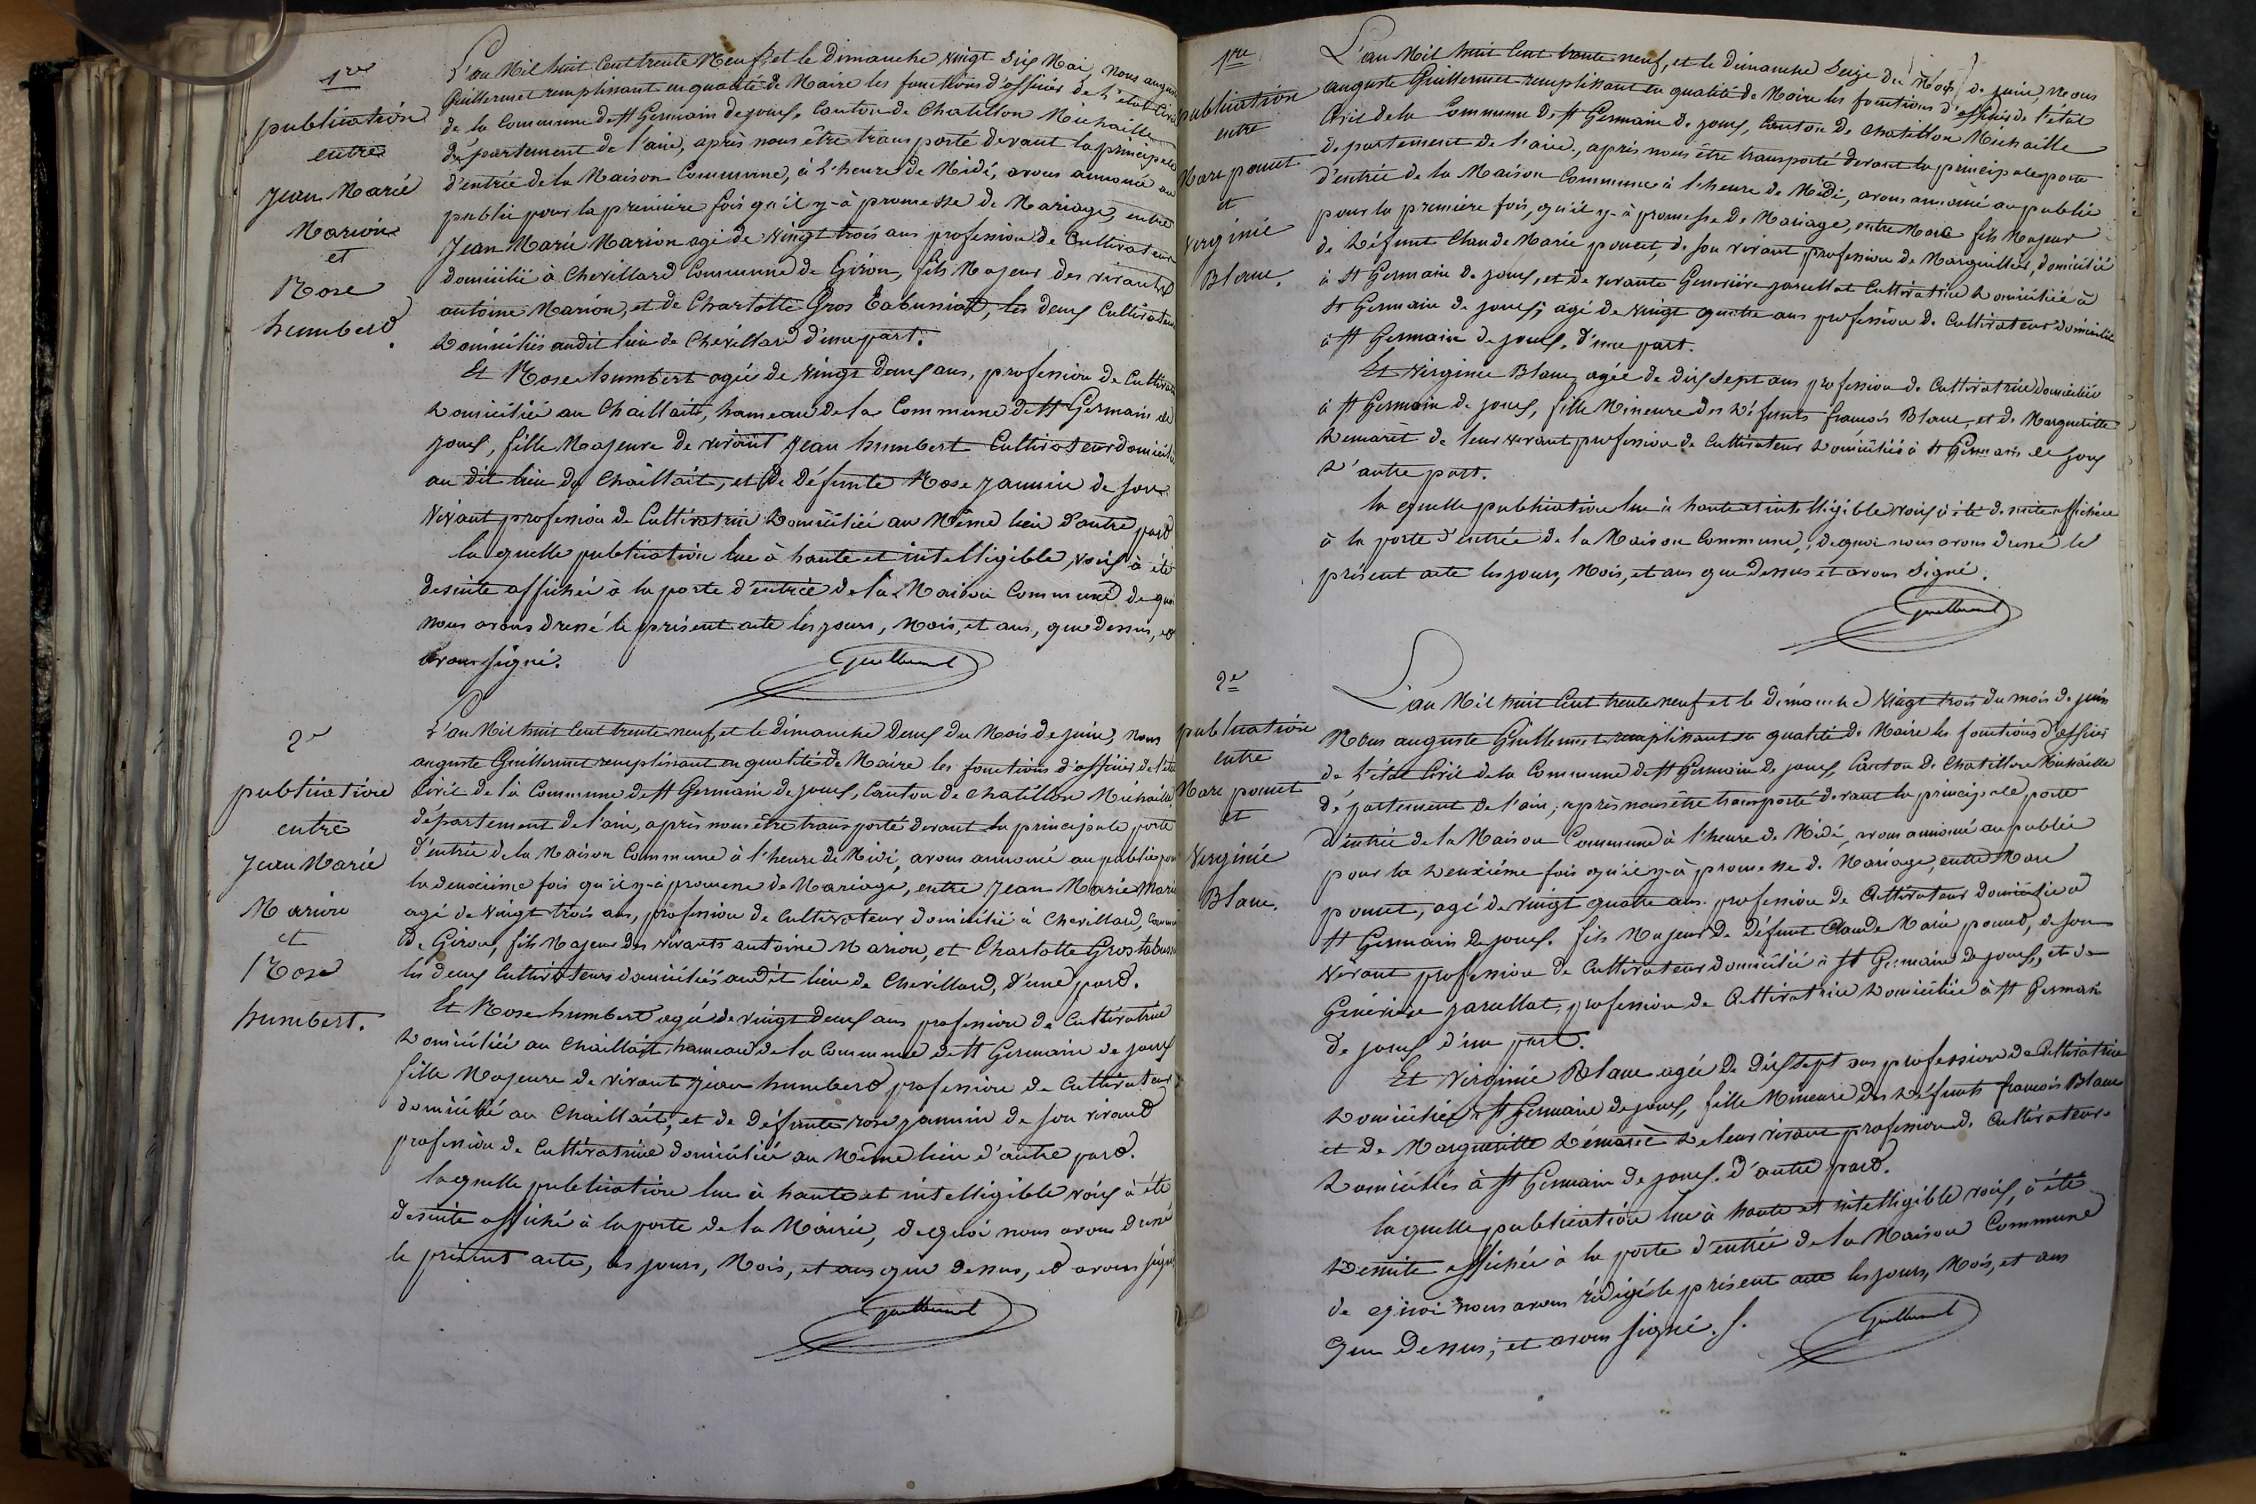 1re
publication
entre
Jean Marie
Marion
et
Rose
humbert.
L'an Mil huit Cent trente Neuf, et le Dimanche vingt Six Mai, Nous auguste
Guillermet remplissant en qualité de Maire les fonctions d'officier de l'état Civil
de la Commune de St Germain de joux, Canton de Chatillon Michaille
département de l'ain, après nous être transporté devant la principale
d'entrée de la Maison Commune, à l'heure de Midi, avons annoncé au
public pour la première fois qu'il y-à promesse de Mariage, entre
Jean Marie Marion agé de vingt trois ans profession de Cultivateur
domicilié à Chevillard Commune de Giron, fils Majeur des vivants
antoine Marion, et de Charlotte Gros Tabussiat, les deux Cultivateurs
Domiciliés audit lieu de Chevillard d'une part.
Et Rose humbert agée de vingt deux ans, profession de Cultivatrice
Domiciliée au Chaillait, hameau de la Commune de St Germain de
joux, fille Majeure de vivant Jean humbert Cultivateur domicilié
au dit lieu du Chaillait, et de Défunte Rose Jannin de son
vivant profession de Cultivatrice Domiciliée au Même lieu d'autre part
la quelle publication lue à haute et intelligible voix à été
desuite affichée à la porte d'entrée de la Maison Commune de quoi
nous avons dressé le présent acte les jours, Mois, et ans, que dessus, et
avons signé.
Guillermet
2e
publication
entre
Jean Marie
Marion
et
Rose
humbert.
L'an Mil huit Cent trente neuf, et le dimanche Deux du Mois de juin, Nous
auguste Guillermet remplissant en qualité de Maire les fonctions d'officier de l'état
Civil de la Commune de St Germain de joux, Canton de Chatillon Michaille
département de l'ain, après nous être transporté devant la principale porte
d'entrée de la Maison Commune à l'heure de Midi, avons annoncé au public pour
la deuxième fois qu'il y-à promesse de Mariage, entre Jean Marie Marion
agé de vingt trois ans, profession de Cultivateur domicilié à Chevillard, Commune
de Giron, fils Majeur des vivants antoine Marion, et Charlotte Gros tabussiat
les deux Cultivateurs domiciliés audit lieu de Chevillard, d'une part.
Et Rose humbert agée de vingt deux ans profession de Cultivatrice
Domiciliée au Chaillait, hameau de la Commune de St Germain de joux
fille Majeure de vivant Jean humbert profession de Cultivateur
domicilié au Chaillait, et de Défunte rose jannin de son vivant
profession de Cultivatrice domiciliée au Même lieu d'autre part.
laquelle publication lue à haute et intelligible voix à été
desuite affiché à la porte de la Mairie, de quoi nous avons dressé
le présent acte, les jours, Mois, et ans que dessus, et avons signé
Guillermet
1re
publication
entre
Marc poncet
et
Virginie
Blanc.
L'an Mil huit Cent trente neuf, et le dimanche Seize du Mois de juin, Nous
auguste Guillermet remplissant en qualité de Maire les fonctions d'officier de l'état
Civil de la Commune de St Germain de joux, Canton de Chatillon Michaille
département de l'ain, après nous être transporté devant la principale porte
d'entrée de la Maison Commune à l'heure de Midi, avons annoncé au public
pour la première fois, qu'il y-à promesse de Mariage, entre Marc fils Majeur
de Défunt Claude Marie poncet, de son vivant profession de Marguillier, domicilié
à St Germain de joux, et de vivante Geneviève jarullat Cultivatrice Domiciliée à
St Germain de joux; agé de vingt quatre ans profession de Cultivateur domicilié
à St Germain de joux, d'une part.
Et Virginie Blanc, agée de dix sept ans profession de Cultivatrice domiciliée
à St Germain de joux, fille Mineure des Défunts françois Blanc, et de Margueritte
Demarêt de leur vivant profession de Cultivateur Domiciliés à St Germain de joux
d'autre part.
la quelle publication lue à haute et intelligible voix à été de suite affichée
à la porte d'entrée de la Maison Commune, de quoi nous avons dressé le
présent acte les jours, Mois, et ans que Dessus et avons signé.
Guillermet
2e
publication
entre
Marc poncet
et
Virginie
Blanc.
L'an Mil huit Cent trente neuf et le dimanche vingt trois du mois de juin
Nous auguste Guillermet remplissant en qualité de Maire les fonctions d'officier
de l'état Civil de la Commune de St Germain de joux, Canton de Chatillon Michaille
département de l'ain, après nous être transporté devant la principale porte
d'entrée de la Maison Commune à l'heure de Midi, avons annoncé au public
pour la Deuxième fois qu'il y-à promesse de Mariage, entre Marc
poncet, agé de vingt quatre ans profession de Cultivateur domicilié à
St Germain de joux. fils Majeur de Défunt Claude Marie poncet, de son
vivant profession de Cultivateur domicilié à St Germain de joux, et de
Geneviève jarullat, profession de Cultivatrice Domiciliée à St Germain
de joux d'une part.
Et Virginie Blanc agée de Dix sept ans profession de Cultivatrice
Domiciliée à St Germain de joux, fille Mineure des Défunts françois Blanc
et de Margueritte Démarèt de leur vivant profession de Cultivateurs
Domiciliés à St Germain de joux. d'autre part.
laquelle publication lue à haute et intelligible voix, à été
Desuite affichée à la porte d'entrée de la Maison Commune
de quoi nous avons rédigé le présent acte les jours, Mois, et ans
que Dessus, et avons signé.
Guillermet